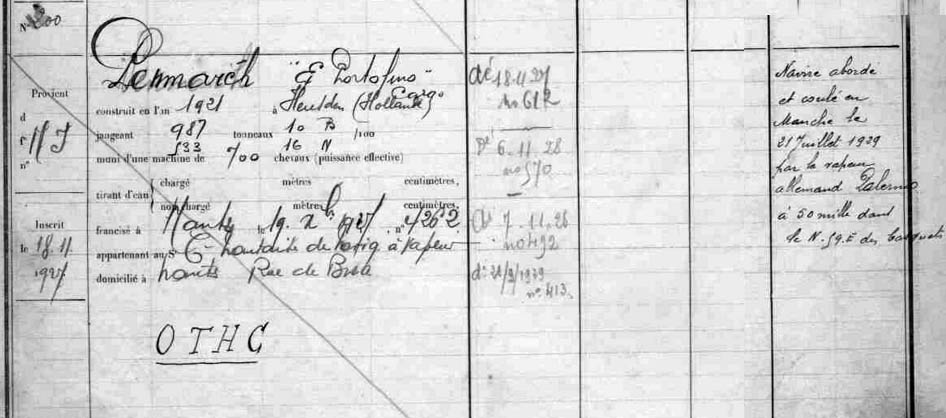 N° 200
Penmarch "E Portofino"
Provient
d
n°
construit en l'an 1921 à Heusden (Hollande) Cargo
jaugeant 987 tonneaux 10 B /100
533 16 N
muni d'une machine de 700 chevaux (puissance effective)
tirant d'eau chargé mètres centimètres,
non chargé mètres centimètres,
Inscrit
le 18.11
1927
francisé à Nantes le 19. X 1927. n° 4262
appartenant au S Cie nantaise de navig à vapeur
domicilié à nantes Rue de
OTHC
dé 18.11.27
no 612
6.11.28
no 570
7.11.28
d: 21/9/1929
n° 413.
Navire abordé
et coulé en
Manche le
21 Juillet 1929
par le vapeur
allemand Palermo
à 50 mille dans
le N. 59. E des Casquets